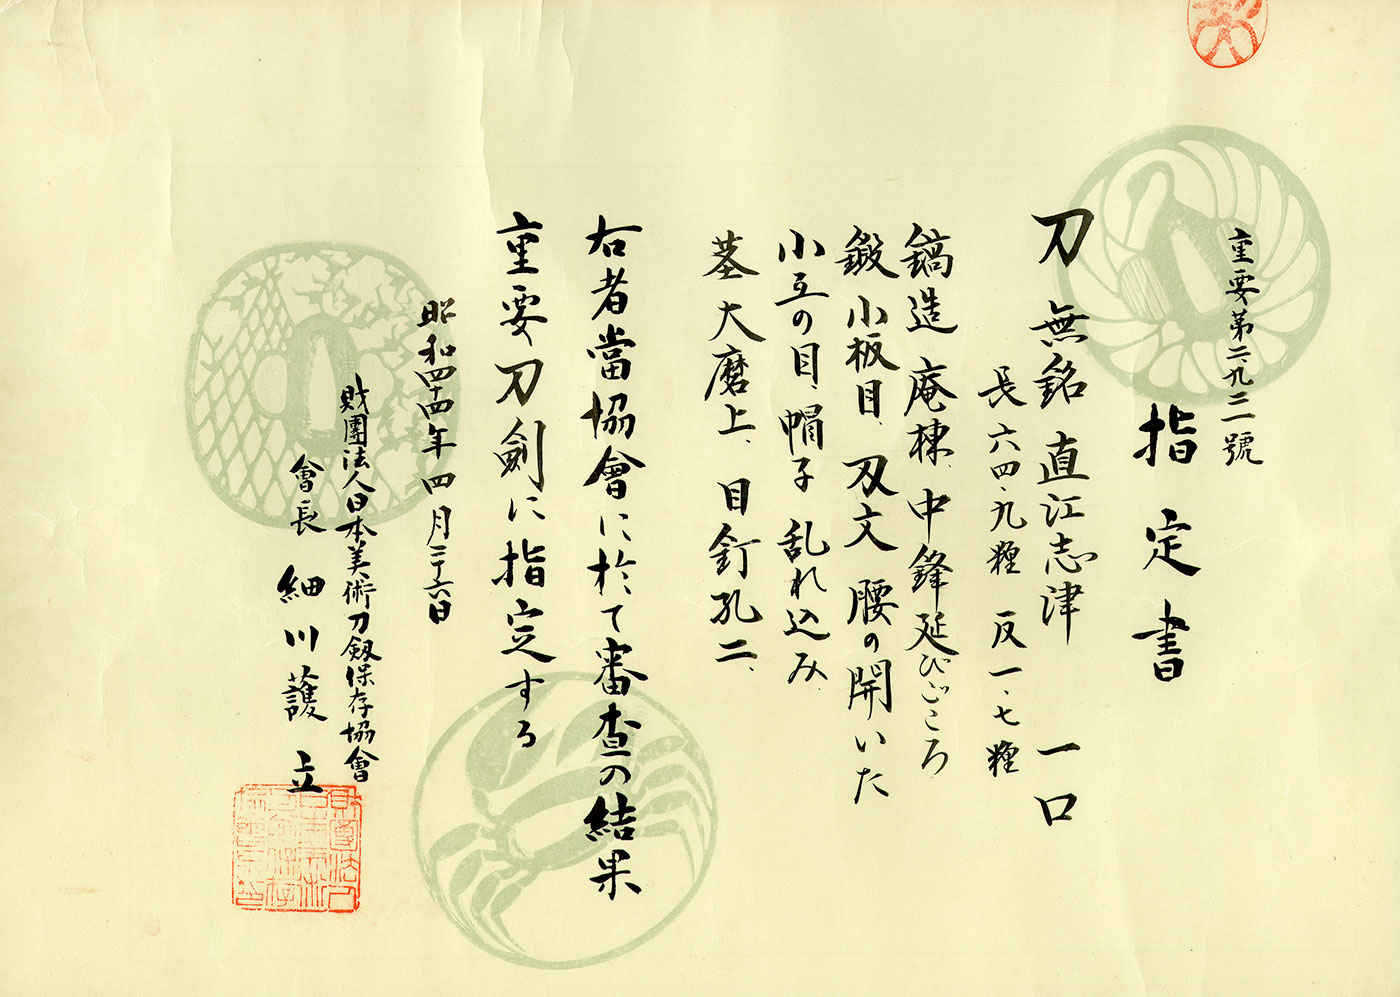 重要第二九三一號
指定書
刀 無銘 直江志津 一口
長 六四・九糎 反 一・七糎
鎬造 庵棟、中鋒延びごころ
鍛 小板目、刄文 腰の開いた
小互の目、帽子 乱れ込み、
茎 大磨上、目釘孔二、
右者當協會に於て審査の結果
重要刀劍に指定する
昭和四十四年 四月二十六日
財團法人日本美術刀劔保存協會
會長 細川護立